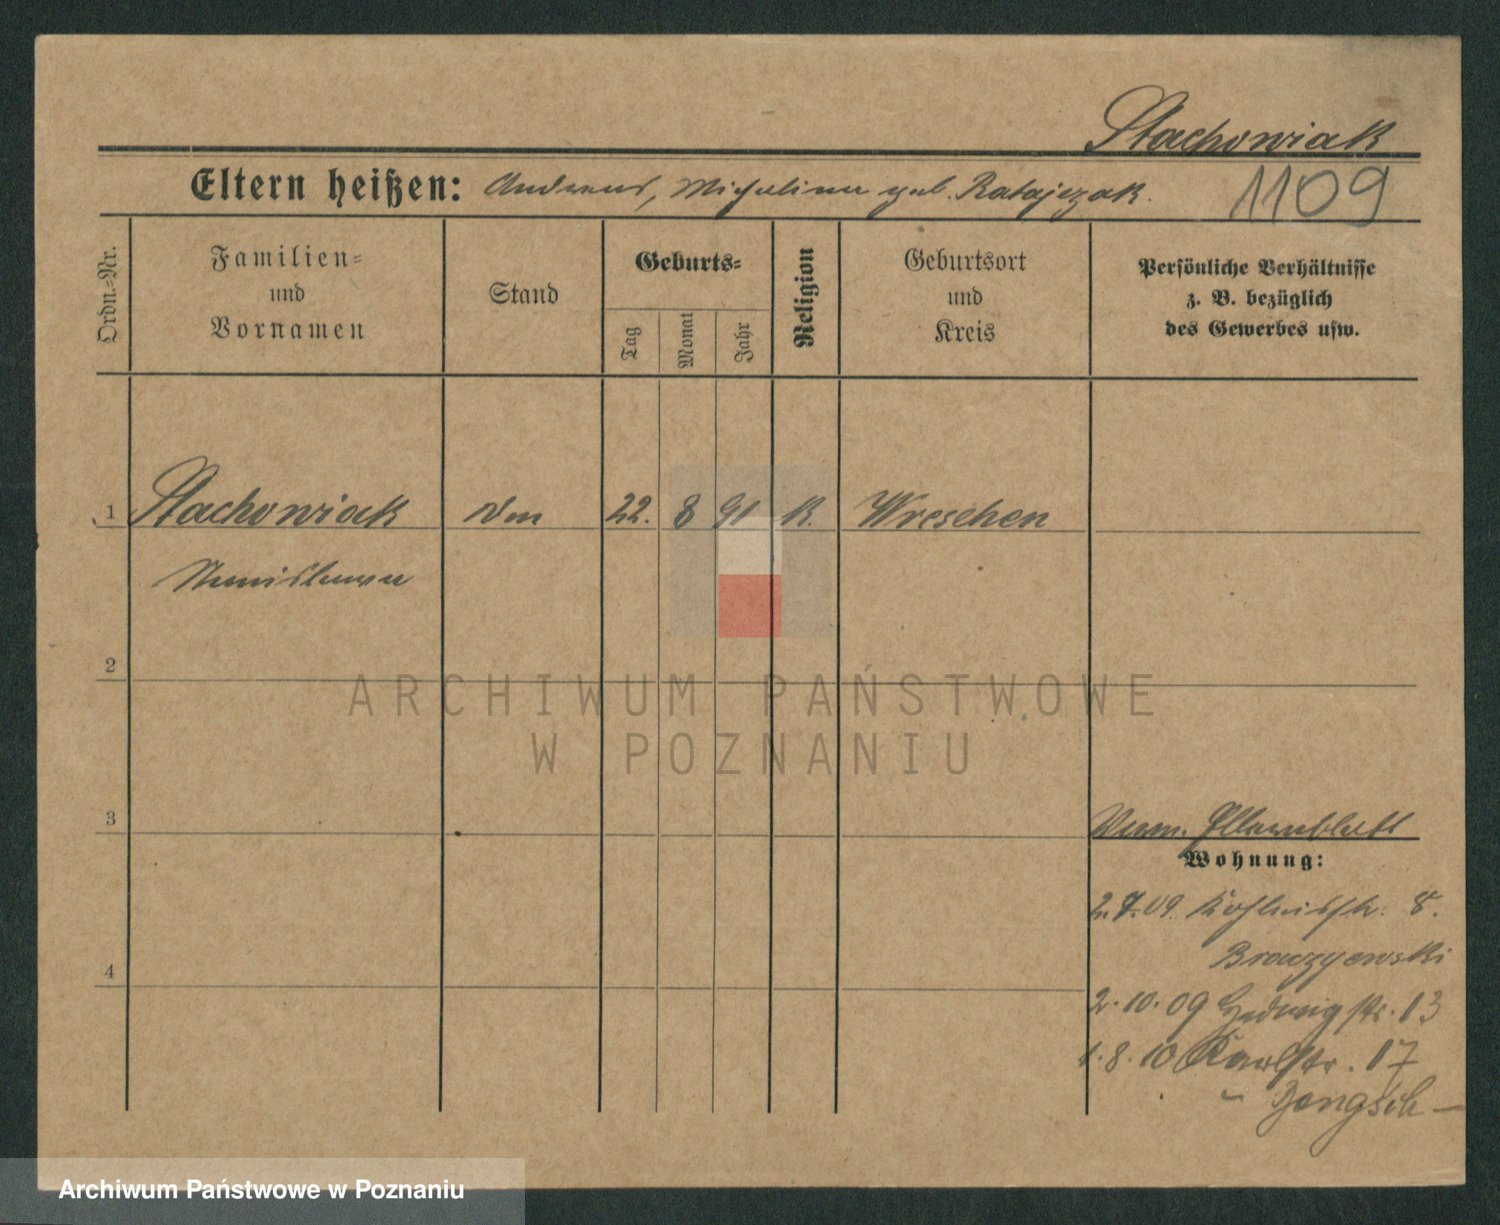 Stachowiak
Eltern heißen: Andreas, Michalina geb. Ratajczak.
1109
Ordn.-Nr.
Familien-
und
Vornamen
Stand
Geburts-
Tag
Monat
Jahr
Religion
Geburtsort
und
Kreis
Persönliche Verhältnisse
z. B. bezüglich
des Gewerbes usw.
1 Stachowiak 22. 8 91 K. Wreschen
Stanislawa
2
ARCHIWUM PAŃSTWOWE
W POZNANIU
3
Wohnung:
2.7.09. 8.
4
2.10.09 Hedwigstr. 13
1.8.10 Karlstr. 17
Archiwum Państwowe w Poznaniu